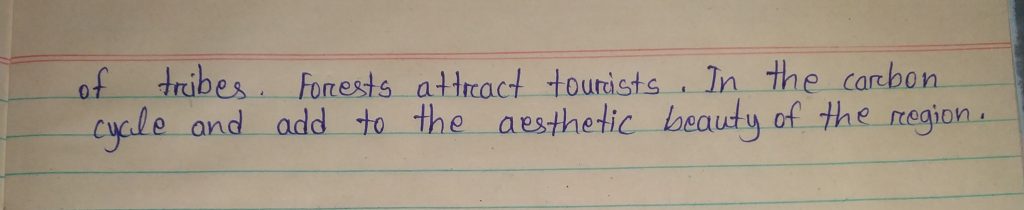 of tribes. Forests attract tourists. In the carbon
cycle and add to the aesthetic beauty of the region.